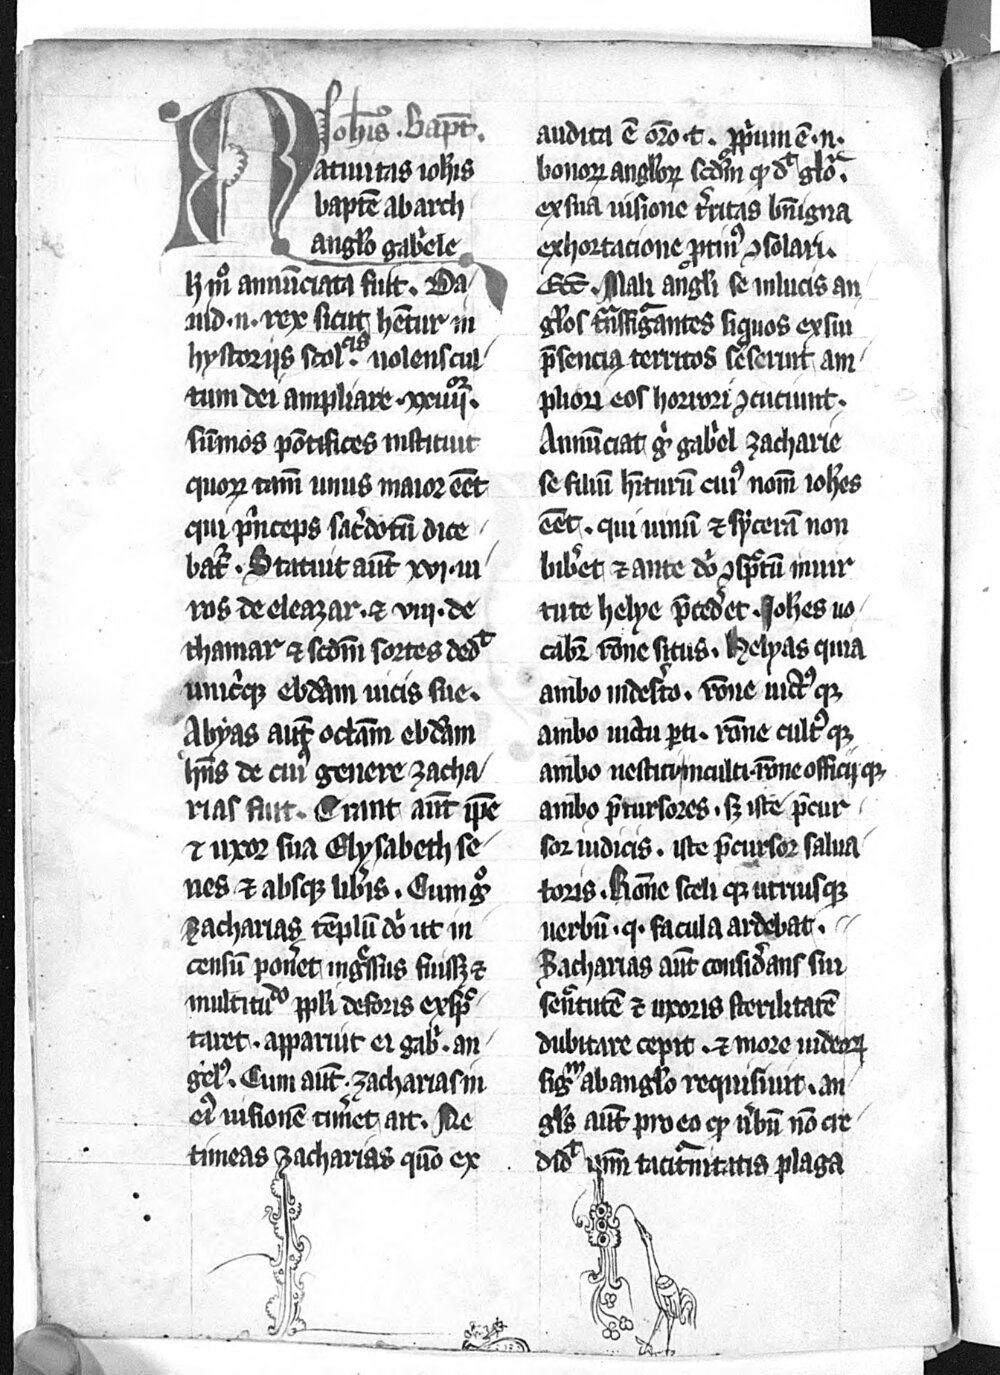 Johīs . Bapt̄ .
Natiuitas ioħis
bapt̄e ab arch
angl̓o gab̓ele
h̓ mͦ annūciata fuit . Da
uid . n . rex sicut hētur in
hystoriis scol.ᶜⁱˢ uolens cul
tum dei ampliare . xxiiii.ᵒʳ
sūmos pōtifices instituit
quoꝝ tam̄ unus maior eēt
qui p̄nceps sac̓dotū dice
bat̓ . Statuit aūt xvi . ui
ros de eleazar . ⁊ viii . de
thamar ⁊ scd̄m sortes dedᵗ
unic̓qꝫ ebdam̄ uicis sue .
Abyas aut̄ octam̄ ebdam̄
hn̄s de cuiꝰ genere zacha
rias fuit . Erant aūt ip̄e
⁊ uxor sua Elysabeth se
nes ⁊ absqꝫ lib̓is . Cum gͦ
zacharias tēplū dn̓i ut in
censū pon̓et ingͬssus fuissꝫ ⁊
multituᵈᵒ pp̄li deforis exspͨ
taret . apparuit ei gab̓ . an
gelꝰ . Cum aūt . zacharias in
ei̓ uisionē tim̓et ait . Ne
timeas zacharias qūo ex
audita ē or̄o . t . ꝓp̄um ē . n .
bonoꝝ angl̓oꝝ scd̄m qͥ dᵗ glo̓ .
ex sua uisione t̓ritas bn̄igna
exhortacione ꝓtinꝰ ꝯsolari .
Ecc̄ . Mali ang̓li se in lucis an
gl̓os t̄nsfigᵃntes siquos ex sui
p̄sencia territos senserint am
pliori eos horrori ꝯcutiunt .
Annūciat g̓ gab̓el zacharie
se filiū h̄iturū cuiꝰ nom̄ ioħes
eēt . qui uinū ⁊ sycerā non
bib̓et ⁊ ante dn̓m ꝯspc̄tū in uir
tute helye p̄ced̓et . Ioħes uo
cabr̄ rōne situs . Helyas quia
ambo in des̓to . rōne uictꝰ qꝫ
ambo uictu ꝑti . rōne cultꝰ qꝫ
ambo uestitu inculti . rōne officii qꝫ
ambo p̄cursores . sꝫ iste p̄cur
sor iudicis . iste p̄cursor salua
toris . Rōne sceli qꝫ utriusqꝫ
uerbū . q . facula ardebat .
Zacharias aūt consid̓ans sui
senͨtutē ⁊ uxoris sterilitatē
dubitare cepit . ⁊ more iudeoꝝ
sigᵐ ab angl̓o requisiuit . an
gl̓s aūt pro eo qꝫ u̓bū nō cre
didᵗ ip̄m taciturnitatis plaga